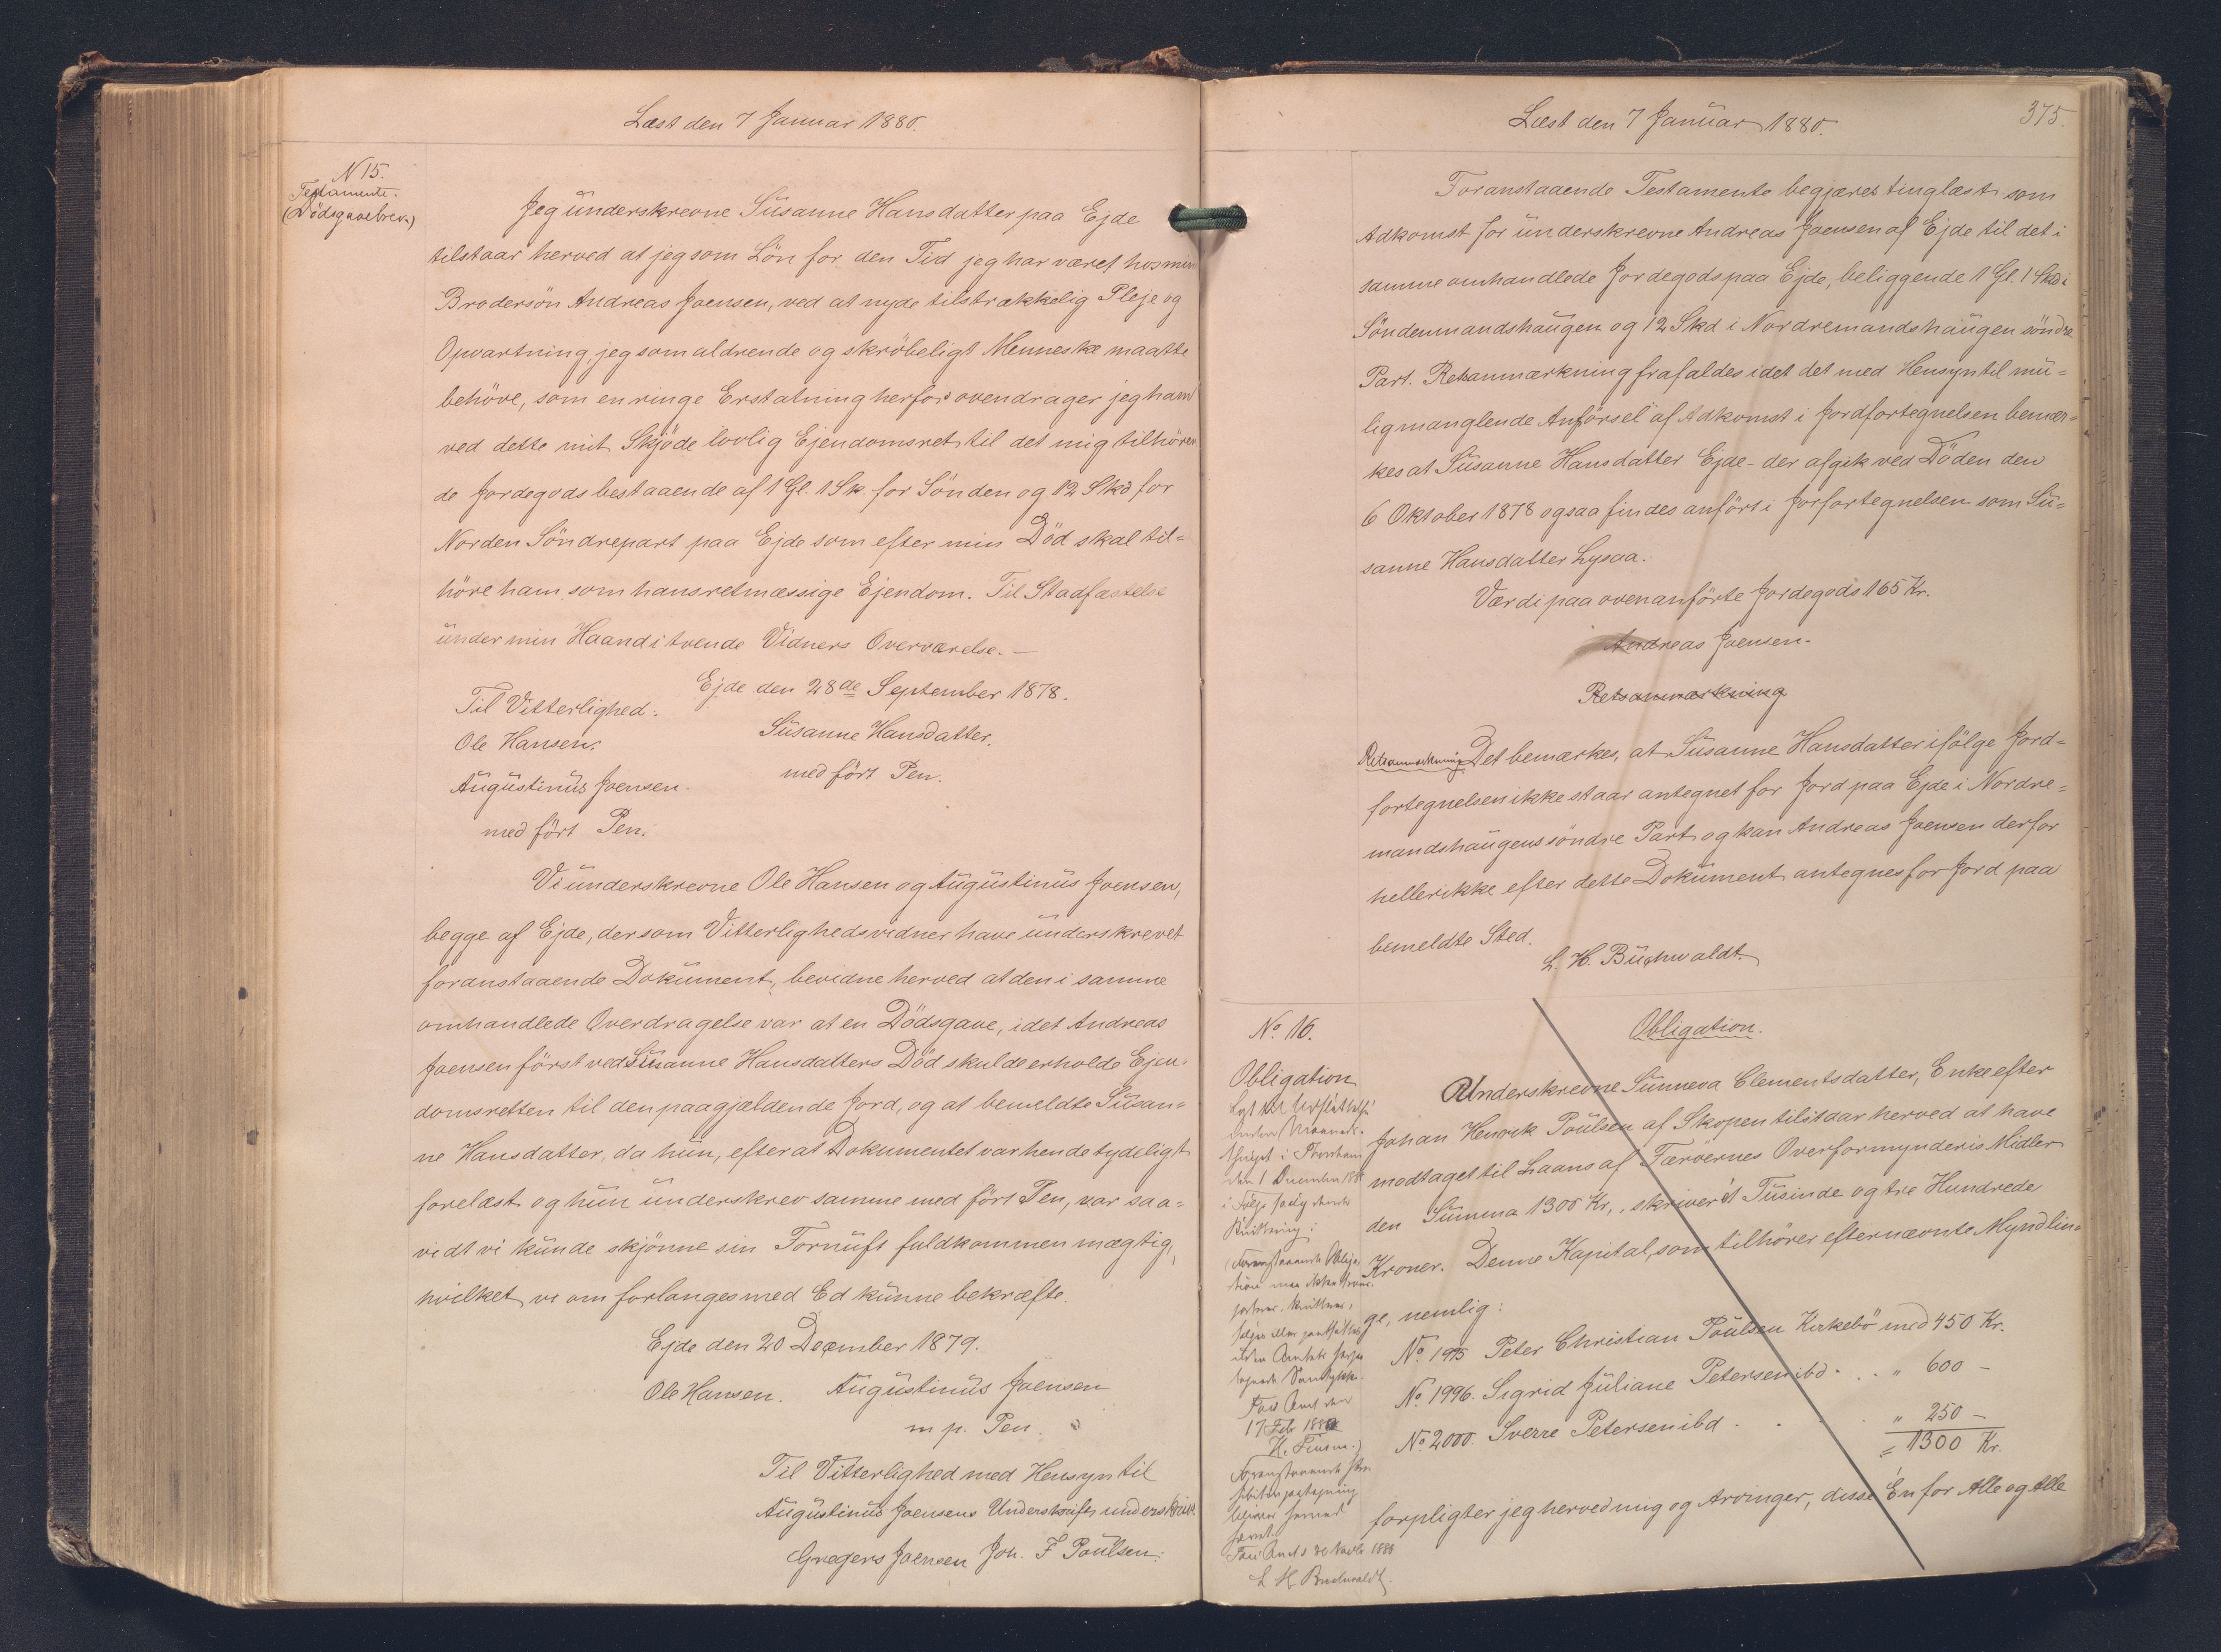 Læst den 7 Januar 1880.
N 15.
Testamente.
(Dödsgavebrev)
Jeg underskrevne Susanne Hansdatter paa Ejde
tilstaar herved at jeg som Lön for den Tid jeg har været hos min
Brodersön Andreas Joensen, ved at nyde tilstrækkelig Pleje og
Opvartning, jeg som aldrende og skröbeligt Menneske maatte
behöve, som en ringe Erstatning herfor ovendrager jeg ham
ved dette mit Skjöde lovlig Ejendomsret til det mig tilhören
de Jordegods bestaaende af 1 Gl. 1 Sk. for Sönden og 12 Skd for
Norden Söndrepart paa Ejde som efter min Död skal til=
höre ham som hans retmæssige Ejendom. Til Stadfæstelse
under min Haand i tvende Vidners Overværelse. —
Ejde den 28de September 1878.
Til Vitterlighed.
Susanne Hansdatter.
Ole Hansen.
med fört Pen.
Augustinus Joensen.
med fört Pen.
Vi underskrevne Ole Hansen og Augustinus Joensen,
begge af Ejde, der som Vitterlighedsvidner have underskrevet
foranstaaende Dokument, bevidne herved at den i samme
omhandlede Overdragelse var at en Dödsgave, idet Andreas
Joensen först ved Susanne Hansdatters Död skulde erholde Ejen-
domsretten til den paagjældende Jord, og at bemeldte Susan=
ne Hansdatter, da hun, efter at Dokumentet var hende tydeligt
forelæst og hun underskrev samme med fört Pen, var saa=
vidt vi kunde skjönne sin Fornuft fuldkommen mægtig,
hvilket vi om forlanges med Ed kunne bekræfte.
Ejde den 20 December 1879.
Ole Hansen. Augustinus Joensen
m p. Pen.
Til Vitterlighed med Hensyn til
Augustinus Joensens Underskrift underskriv
Gregers Joensen Joh. F Poulsen.
Læst den 7 Januar 1880.
375.
Foranstaaende Testamente begjæres tinglæst som
Adkomst for underskrevne Andreas Joensen af Ejde til det i
samme omhandlede Jordegods paa Ejde, beliggende 1 Gl. 1 Skd i
Söndenmandshaugen og 12 Skd i Nordremandshaugen söndre
Part. Retsanmærkning frafaldes idet det med Hensyn til mu=
lig manglende Anförsel af Adkomst i Jordfortegnelsen bemær=
kes at Susanne Hansdatter Ejde - der afgik ved Döden den
6 Oktober 1878 ogsaa findes anfört i Jorfortegnelsen som Su=
sanne Hansdatter Lysaa.
Værdi paa ovenanförte Jordegods 165 Kr.
Andreas Joensen.
Retsanmærkning
Retsanmærkning. Det bemærkes, at Susanne Hansdatter ifölge Jord=
fortegnelsen ikke staar antegnet for Jord paa Ejde i Nordre=
mandshaugens söndre Part og kan Andreas Joensen derfor
heller ikke efter dette Dokument antegnes for Jord paa
bemeldte Sted.
L. H. Buchwaldt.
No. 16.
Obligation
i Thorshavn
den 1 December
Kvittering:
Foranstaaende Obliga-
tion maa ikke trans-
porteres, kvitteres,
sælges eller pantsættes
uden Amtets
Samtykke.
Færø Amt den
17 Feb 1880
H. Finsen.)
Foranstaaende
Færø Amt
L H Buchwaldt.
Obligation.
Underskrevne Sunneva Clementsdatter, Enke efter
Johan Henrik Poulsen af Skopen tilstaar herved at have
modtaget til Laans af Færöernes Overformynderis Midler
den Summa 1300 Kr., skriver et Tusinde og tre Hundrede
Kroner. Denne Kapital, som tilhörer efternævnte Myndlin=
ge, nemlig:
No. 1995 Peter Christian Poulsen Kirkebö med 450 Kr.
No. 1996. Sigrid Juliane Petersen ibd. . . " 600 —
No. 2000. Sverre Petersen ibd . . . " 250 —
= 1300 Kr.
forpligter jeg herved mig og Arvinger, disse Én for Alle og Alle